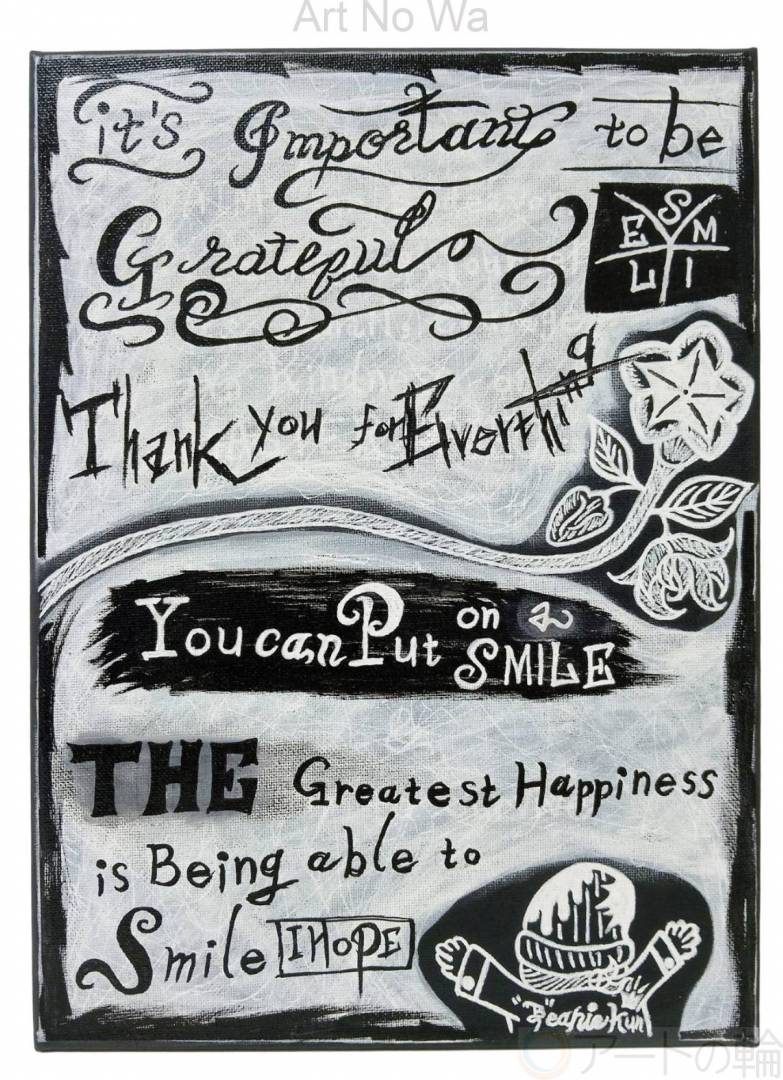 Art No Wa
it's Important to be
Grateful
S
E M
L I
Thank you for Everthing
You can Put on a
SMILE
THE Greatest Happiness
is Being able to
Smile I HOPE
"Beanie Kun"
アートの輪